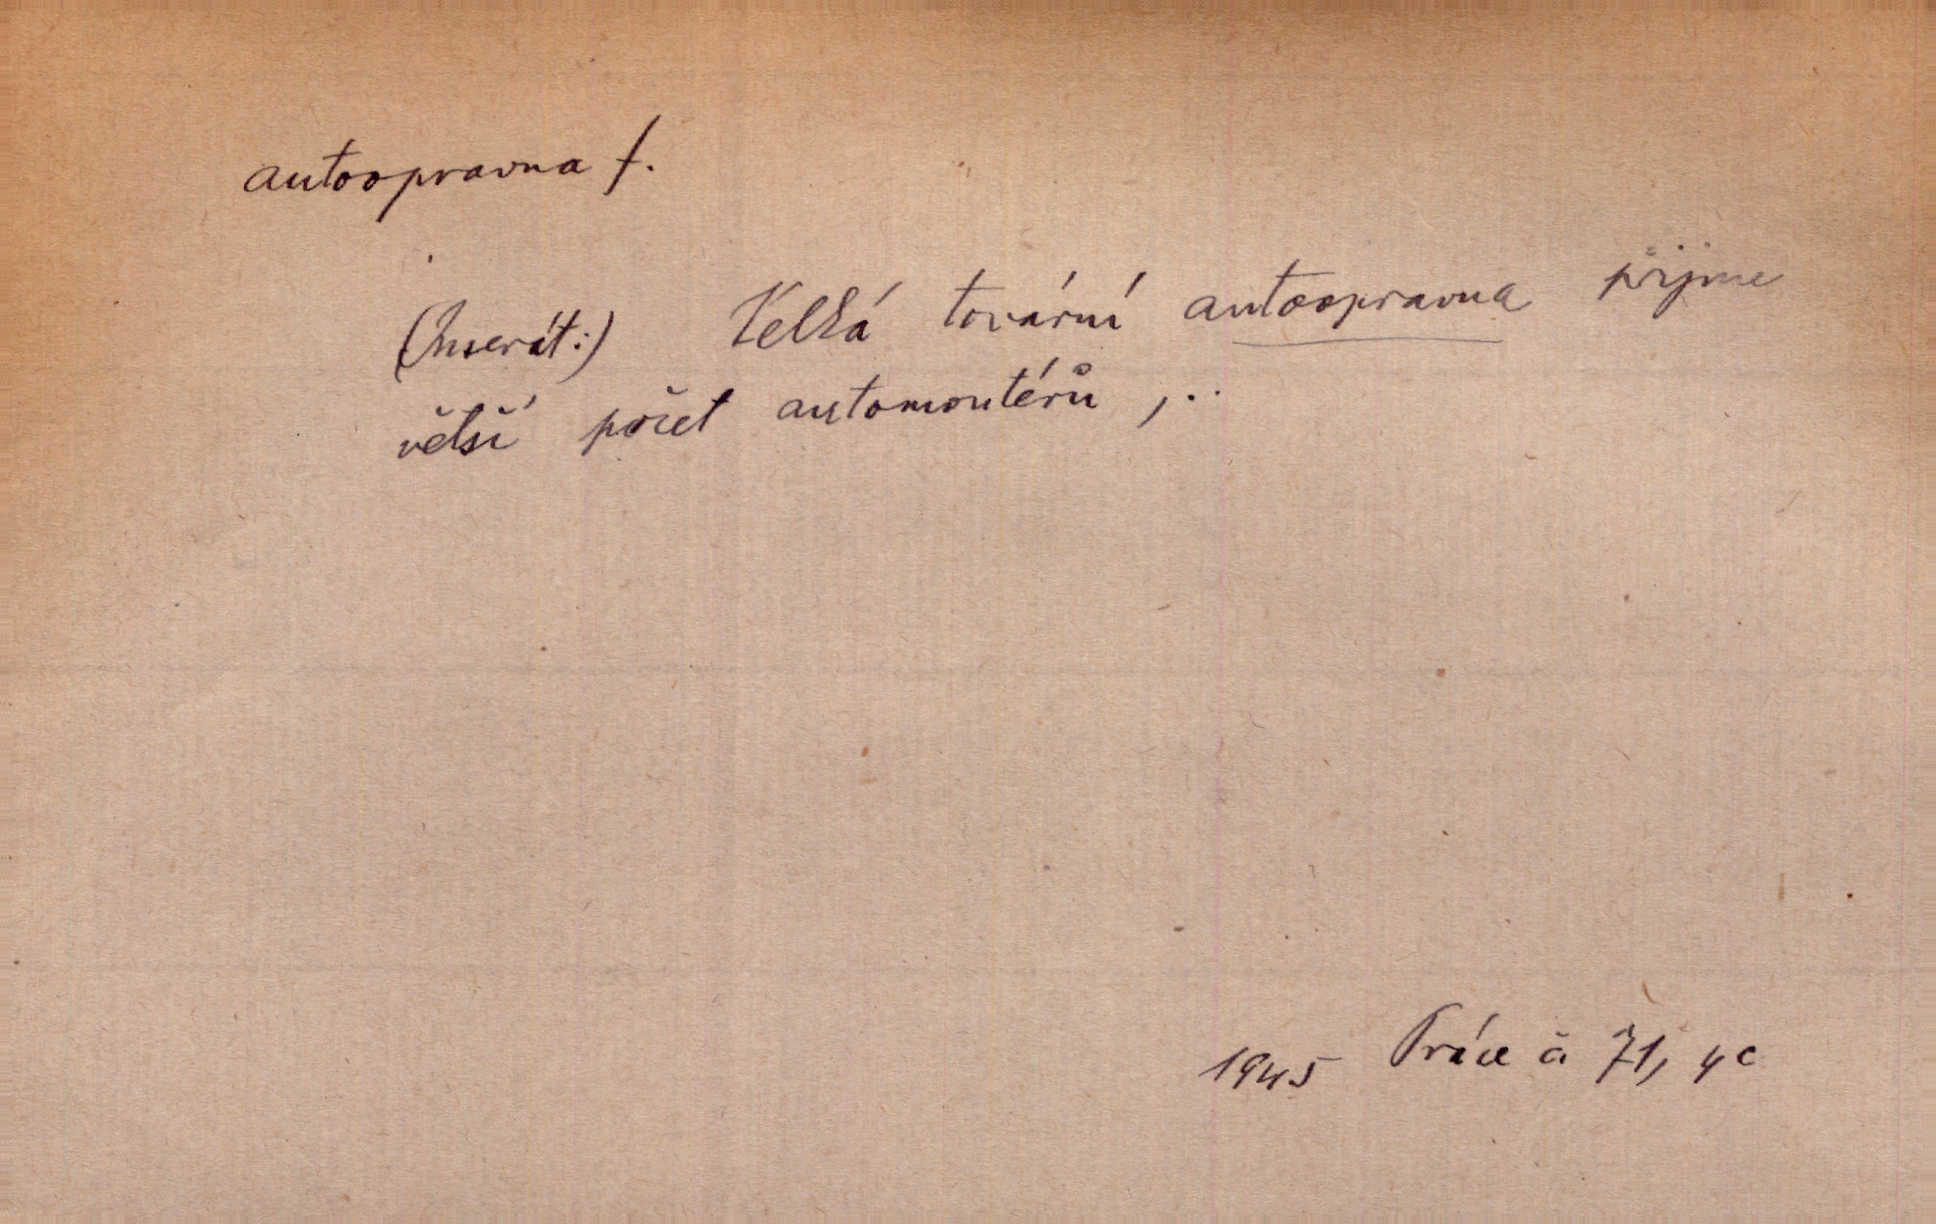 autoopravna f.
(Inserát:) Velká tovární autoopravna přijme
větší počet automontérů, ..
1945 Práce č 71, 4c